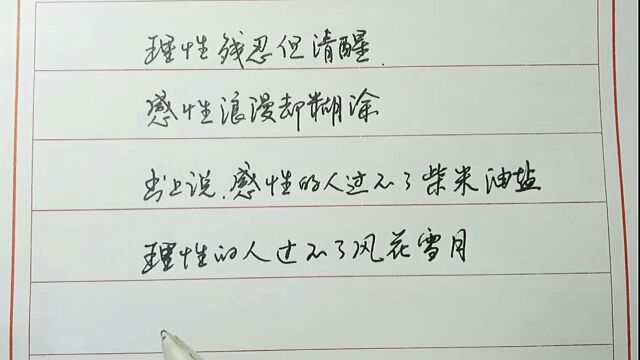 理性残忍但清醒.
感性浪漫却糊涂
书上说.感性的人过不了柴米油盐
理性的人过不了风花雪月